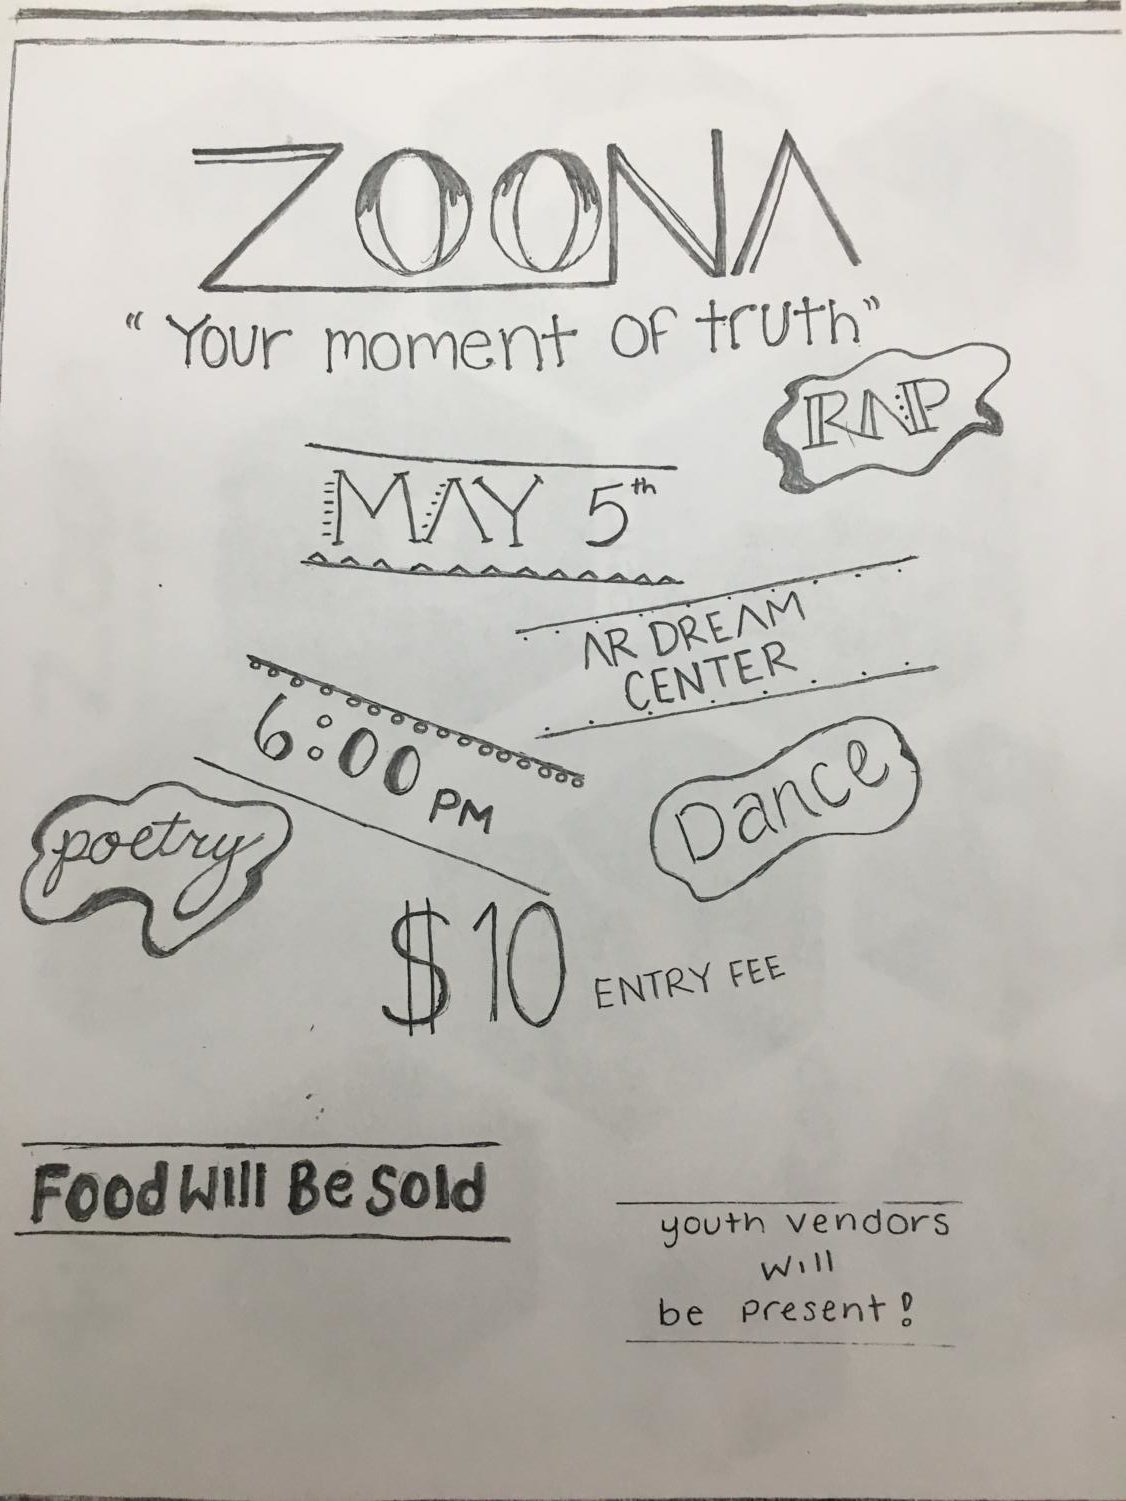 ZOONA
"Your moment of truth"
RNP
MAY 5th
AR DREAM
CENTER
6:00 PM
Dance
poetry
$10 ENTRY FEE
Food Will Be Sold
youth vendors
will
be present!